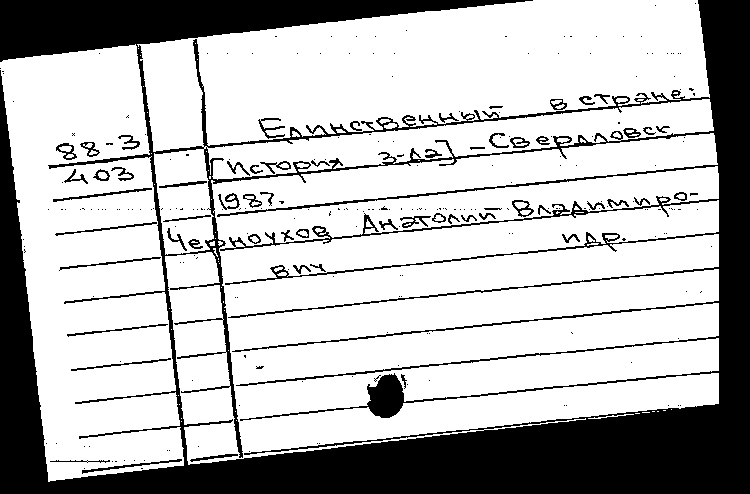 Единственный в стране:
88-3
403
[История з-да] - Свердловск
1987.
Черноухов Анатолий Владимиро-
вич и др.